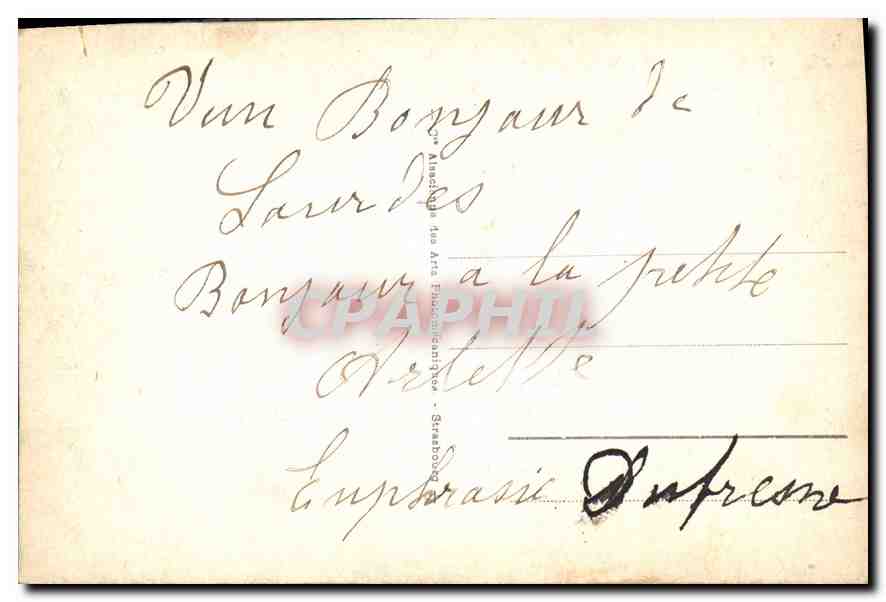 Vun Bonjour de
Lourdes
Bonjour a la petite
Arlette
Euphrasie Dufresne
Cie Alsacienne des Arts Photomécaniques - Strasbourg
CPAPHIL